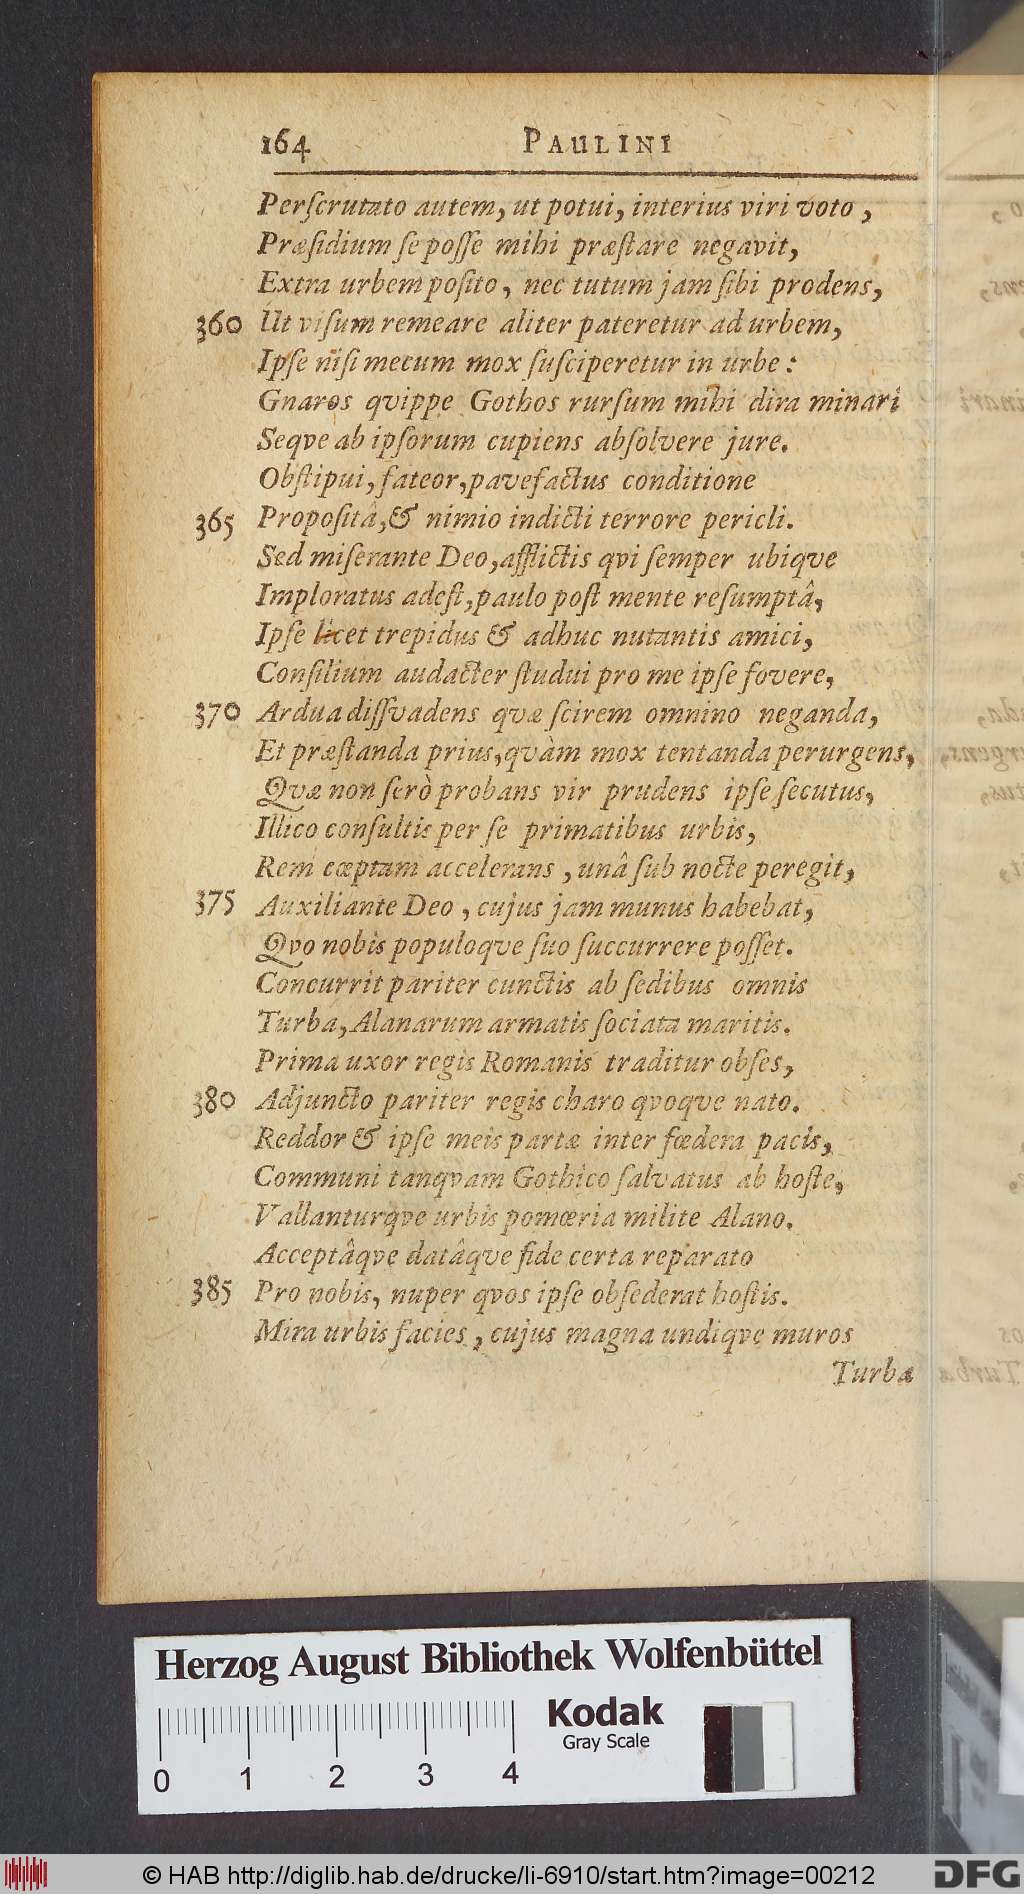 164 PAULINI
Perſcrutato autem, ut potui, interius viri voto,
Præſidium ſe poſſe mihi præſtare negavit,
Extra urbem poſito, nec tutum jam ſibi prodens,
360 Ut viſum remeare aliter pateretur ad urbem,
Ipſe niſi mecum mox ſuſciperetur in urbe:
Gnaros qvippe Gothos rurſum mihi dira minari
Seqve ab ipſorum cupiens abſolvere jure.
Obſtipui, fateor, pavefactus conditione
365 Propoſitâ, & nimio indicti terrore pericli.
Sed miſerante Deo, afflictis qvi ſemper ubiqve
Imploratus adeſt, paulo poſt mente reſumptâ,
Ipſe licet trepidus & adhuc nutantis amici,
Conſilium audacter ſtudui pro me ipſe fovere,
370 Ardua diſſvadens qvæ ſcirem omnino neganda,
Et præſtanda prius, qvàm mox tentanda perurgens,
Qvæ non ſerò probans vir prudens ipſe ſecutus,
Illico conſultis per ſe primatibus urbis,
Rem cœptam accelerans, unâ ſub nocte peregit,
375 Auxiliante Deo, cujus jam munus habebat,
Qvo nobis populoqve ſuo ſuccurrere poſſet.
Concurrit pariter cunctis ab ſedibus omnis
Turba, Alanarum armatis ſociata maritis.
Prima uxor regis Romanis traditur obſes,
380 Adjuncto pariter regis charo qvoqve nato.
Reddor & ipſe meis partæ inter fœdera pacis,
Communi tanqvam Gothico ſalvatus ab hoſte,
Vallanturqve urbis pomœria milite Alano.
Acceptâqve datâqve fide certa reparato
385 Pro nobis, nuper qvos ipſe obſederat hoſtis.
Mira urbis facies, cujus magna undiqve muros
Turba
Herzog August Bibliothek Wolfenbüttel
Kodak
Gray Scale
0 1 2 3 4
© HAB http://diglib.hab.de/drucke/li-6910/start.htm?image=00212
DFG